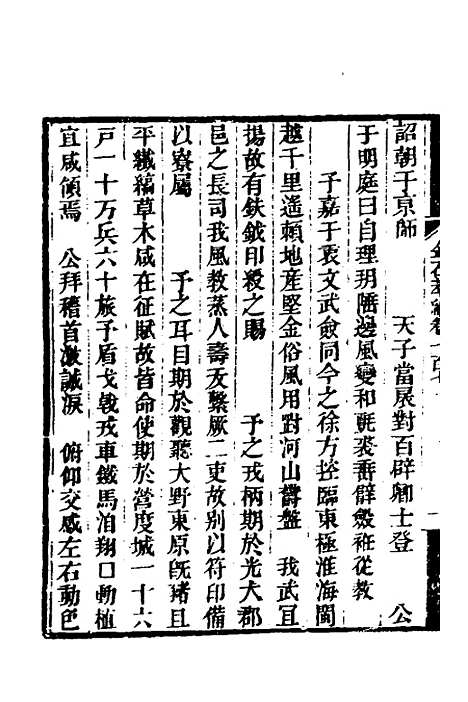 金石萃編卷一百七
詔朝于京師　天子當扆對百辟卿士登　公
于明庭曰自理玥隴邊風變和氈裘番辟毅祍從教
予嘉于衷文武僉同今之徐方控臨東極淮海閩
越千里遥賴地産堅金俗風用對河山鬱盤　我武亘
揚故有鈇鉞印綬之賜　予之戎柄期於光大郡
邑之長司我風教蒸人壽夭繫厥二吏故别以符印備
以寮屬　予之耳目期於觀聽大野東原旣豬且
平纎縞草木咸在征賦故皆命使期於營度城一十六
戸一十万兵六十旅予盾戈戟戎車鐵馬洎翔口動植
宜咸領焉　公拜稽首激誠淚　俯仰交感左右動色